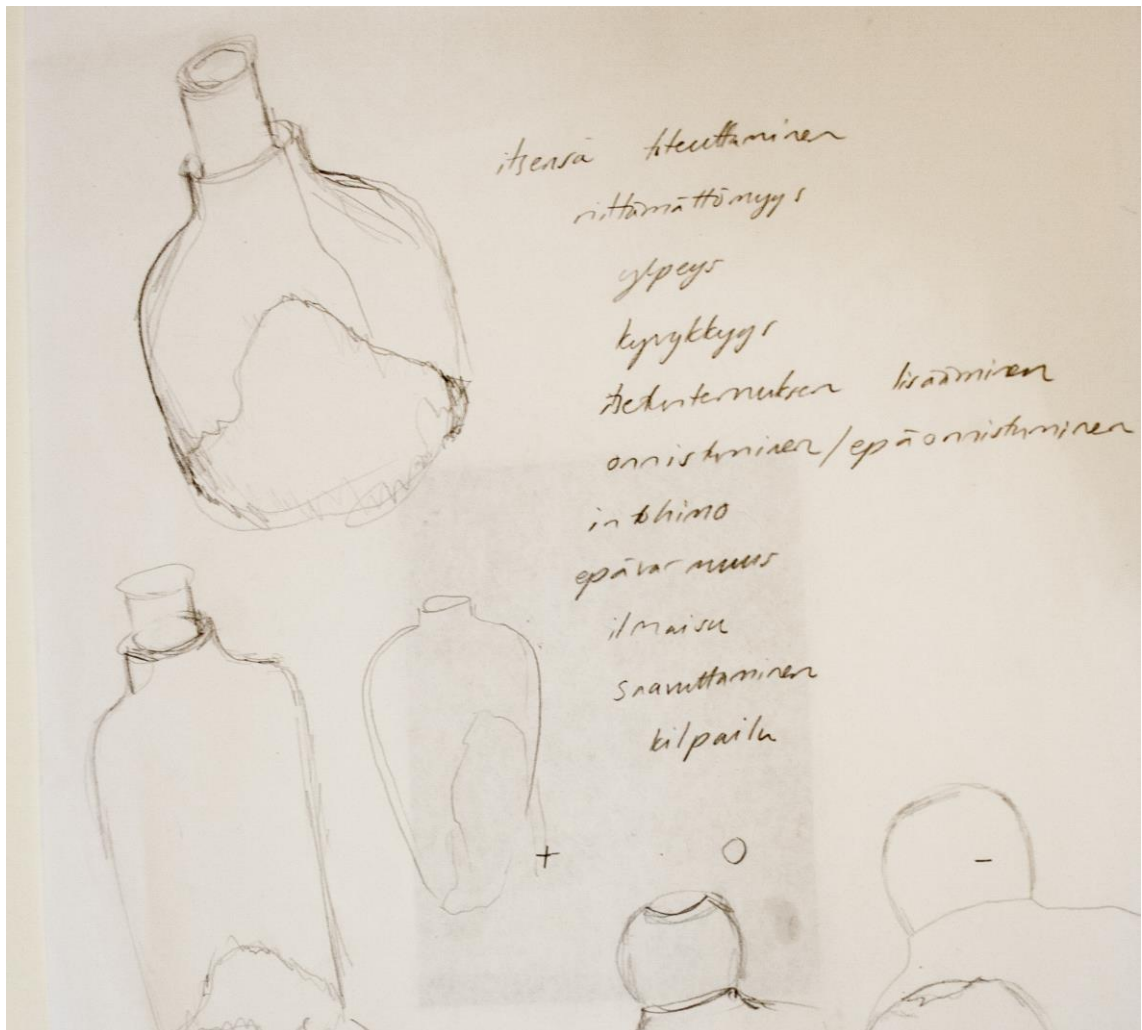 itsensä toteuttaminen
riittämättömyys
ylpeys
kyvykkyys
itsetuntemuksen lisääminen
onnistuminen/epäonnistuminen
intohimo
epävarmuus
ilmaisu
saavuttaminen
kilpailu
+ O -